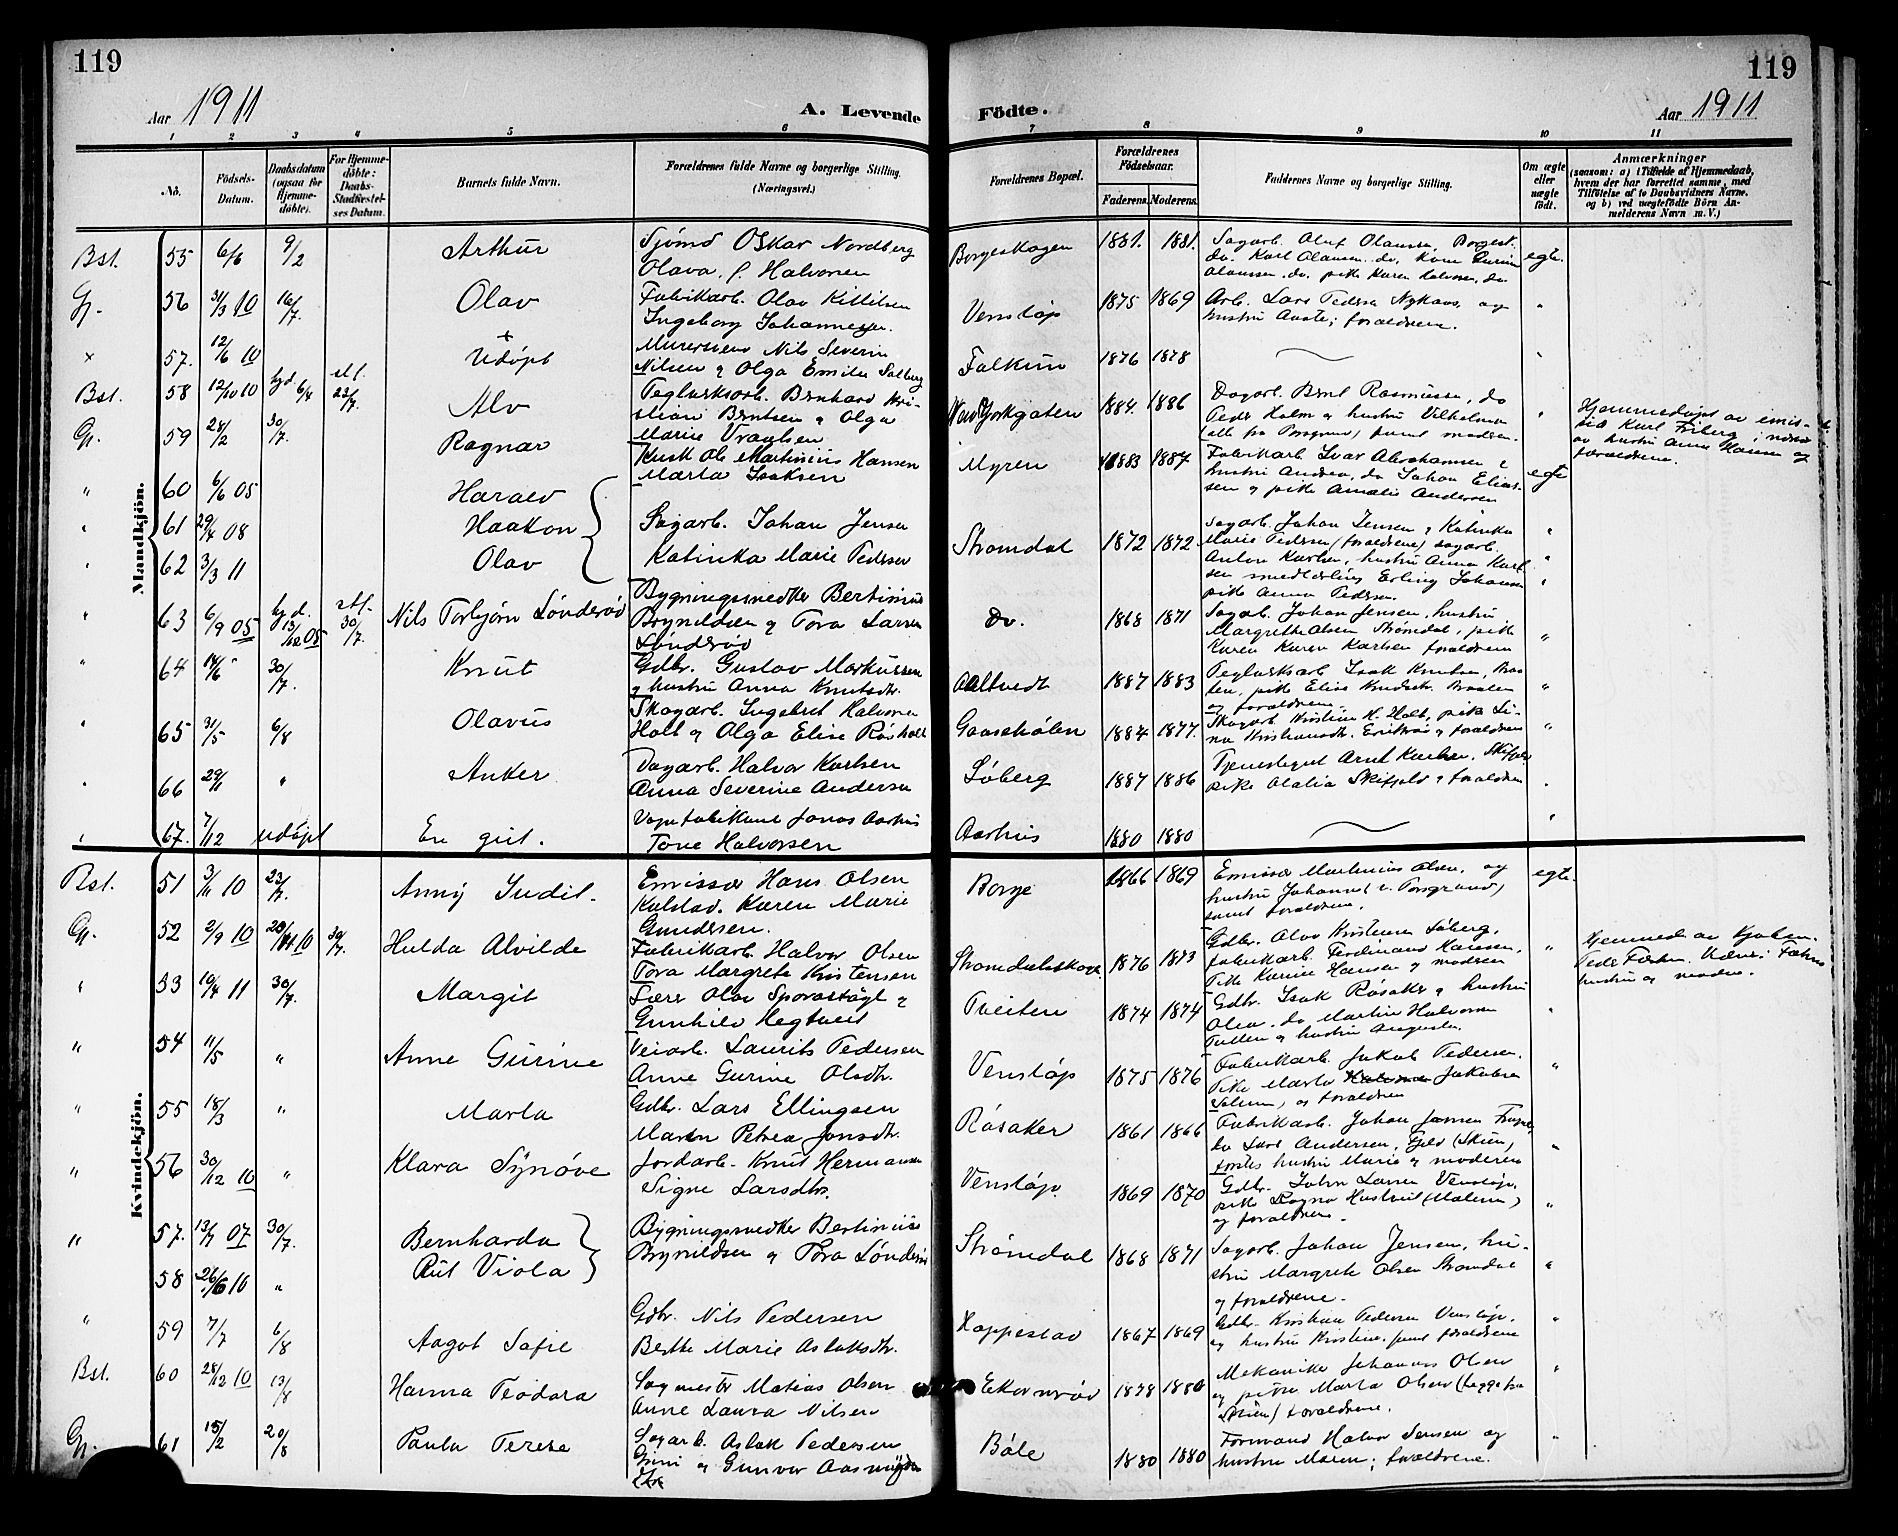 119
119
Aar 1911
A. Levende
Födte.
Aar 1911
1 2 3 4 5 6 7 8 9 10 11
No.
Födsels-Datum.
Daabsdatum (ogsaa for Hjemme-döbte).
For Hjemme-döbte: Daabs-Stadfæstel-ses Datum.
Barnets fulde Navn.
Forældrenes fulde Navne og borgerlige Stilling. (Næringsvei.)
Forældrenes Bopæl.
Forældrenes Födselsaar.
Faderens. Moderens.
Faddernes Navne og borgerlige Stilling.
Om ægte eller uægte födt.
Anmærkninger
(saasom: a) i Tilfælde af Hjemmedaab,
hvem der har forrettet samme, med
Tilföielse af to Daabsvidners Navne,
og b) ved uægtefödte Börn An-
melderens Navn m. V.)
Mandkjön.
Bst. 55 6/6 9/2 Arthur
Sjömd Oskar Nordberg
Olava f. Halvorsen
Borgeskogen 1881. 1881.
Sagarb. Oluf Olausen, Borgest.
do. Karl Olausen do.
Olaussen do. pike Karen Halvorsen, do
egte.
Gp. 56 31/3 10 16/7. Olav
Fabrikarb. Olav Kittilsen
Ingeborg Johannessen.
Venstöp 1875 1869
Arb. Lars Pedersen Nykaas og
hustru Aaste; foraldrene. "
x 57. 12/6 10 Udöpt
Murersvend Nils Severin
Nilsen & Olga Emilie Solberg
Falkum 1876 1878
Bst. 58 12/10 10 hjd. 6/4 stf. 23/7. Alv
Teglverksarb. Bernhard Kri-
stian Berntsen & Olga
Marie Vraalsen
New Yorkgaten 1884. 1886
Dagarb. Bernt Rasmussen, do
Peder Holm og hustru Vilhelmine
(alle fra Porsgrund) samt modren.
Hjemmedöpt av emis-
sær Karl Friberg i nærvær
av hustru Anna Hansen og
foraldrene.
Gp. 59 28/2 30/7. Ragnar
Kusk Ole Martinius Hansen
Marta Isaksen
Myren 1883 1887
Fabrikarb. Ivar Abrahamsen &
hustru Andrea, do Johan Elias-
sen og pike Amalie Andersen
egte
" 60 6/6 05 Harald
" 61 29/4 08 Haakon
" 62 3/3 11 Olav
Sagarb. Johan Jensen
Katinka Marie Pedersen
Strömdal 1872 1872
Sagarb. Johan Jensen & Katinka
Marie Pedersen (foraldrene) sagarb.
Anton Karlsen, hustru Anna Karl-
sen smedlærling Erling Johansen
pike Anna Pedersen.
" 63 6/9 05 hjd. 13/12 05 stf. 30/7. Nils Torbjörn Lönderöd
Bygningssnedker Bertinius
Brynildsen & Tora Larsen
Lönderöd
Do. 1868 1871
Sagarb. Johan Jensen, hustru
Margrethe Olsen Strömdal, pike
Karen Karlsen foraldrene "
" 64 14/5 30/7. Knut
Gdbr. Gustav Markussen
& hustru Anna Knutsdtr.
Aaltvedt 1887 1883
Teglverksarb. Isak Knutsen, Braa-
ten, pike Elise Knudsdtr. Braaten
og foraldrene. "
" 65 31/5 6/8 Olavus
Skogarb. Ingebret Halvorsen
Holt og Olga Elise Röisholt
Gaasehölen 1884 1877.
Skogarb. Kristian H. Holt, pike Li-
na Kristiansdtr. & foraldrene "
" 66 29/1 " Anker
Dagarb. Halvor Karlsen
Anna Severine Andersen
Söberg 1887 1886
Tjenestegut Arnt Karlsen, Skifjeld
pike Olalia Skifjeld & foraldrene
" 67. 7/12 udöpt En gut.
Vognfabrikant Jonas Aarhus
Tone Halvorsen
Aarhus 1880 1880
Kvindekjön.
Bst. 51 3/11 10 23/7. Anny Judit.
Emissær Hans Olsen
Kalstad. Karen Marie
Gundersen.
Borge 1866 1869
Emissær Martinius Olsen, og
hustru Johanne (v. Porsgrund)
samt foraldrene.
egte.
Gp. 52 2/9 10 30/7. Hulda Alvilde
Fabrikarb. Halvor Olsen
Tora Margrete Kristensen
Strömdalsskogen 1876 1873
Gdbr. Olav Kristensen Söberg,
fabrikarb. Ferdinand Hansen.
Pike Karine Hansen & modren "
Hjemmed av
hustru og modren.
" 53 19/4 11 30/7. Margit
Lærer Olav Sporastöyl &
Gunhild Hegtveit
Tveiten 1874 1874
Gdbr. Isak Rösaker & hustru
Olea. do Martin Halvorsen
Tuften & hustru Augusta. "
" 54 11/5 " Anne Gurine
Veiarb. Laurits Pedersen
Anne Gurine Olsdtr.
Venstöp 1875 1876
Fabrikarb. Jakob Pedersen.
Pike Marta Jakobsen
Solum, og foraldrene "
" 55 18/3 " Marta
Gdbr. Lars Ellingsen
Maren Petrea Jonsdtr.
Rösaker 1861 1866
Fabrikarb. Johan Jansen
do Lars Andersen, Gjeld (Skien)
hustru Marie & moderen "
" 56 30/12 10 " Klara Synöve
Jordarb. Knut Hermansen
Signe Larsdtr.
Venstöp. 1869 1870
Gdbr. John Larsen Venstöp.
pike Ragna Hustveit (Malerne)
og foraldrene. "
" 57. 13/7 07 30/7. Bernharda
58 26/6 10 " Rut Viola
Bygningssnedker Bertinius
Brynildsen & Tora Lönderöd
Strömdal 1868 1871
Sagarb. Johan Jensen, hu-
stru Margrete Olsen Strömdal
og foraldrene. "
" 59 7/7 6/8 Aagot Sofie
Gdbr. Nils Pedersen
Berthe Marie Aslaksdtr.
Hoppestad 1867 1869
Gdbr. Kristian Pedersen Venstöp,
og hustru Kristine, samt foraldrene "
Bst. 60 28/12 10 13/8 Hanna Teodora
Sagmester Matias Olsen
Anne Laura Nilsen
Ekornröd 1878 1880
Mekaniker Johannes Olsen
og pike Marta Olsen (begge fra
Skien) foraldrene. "
Gp. 61 15/2 20/8 Paula Terese
Sagarb. Aslak Pedersen
Grini og Gunvor Aasmunds-
dtr.
Böle 1880 1880
Formand Halvor Jensen og
hustru Maren; foraldrene. "